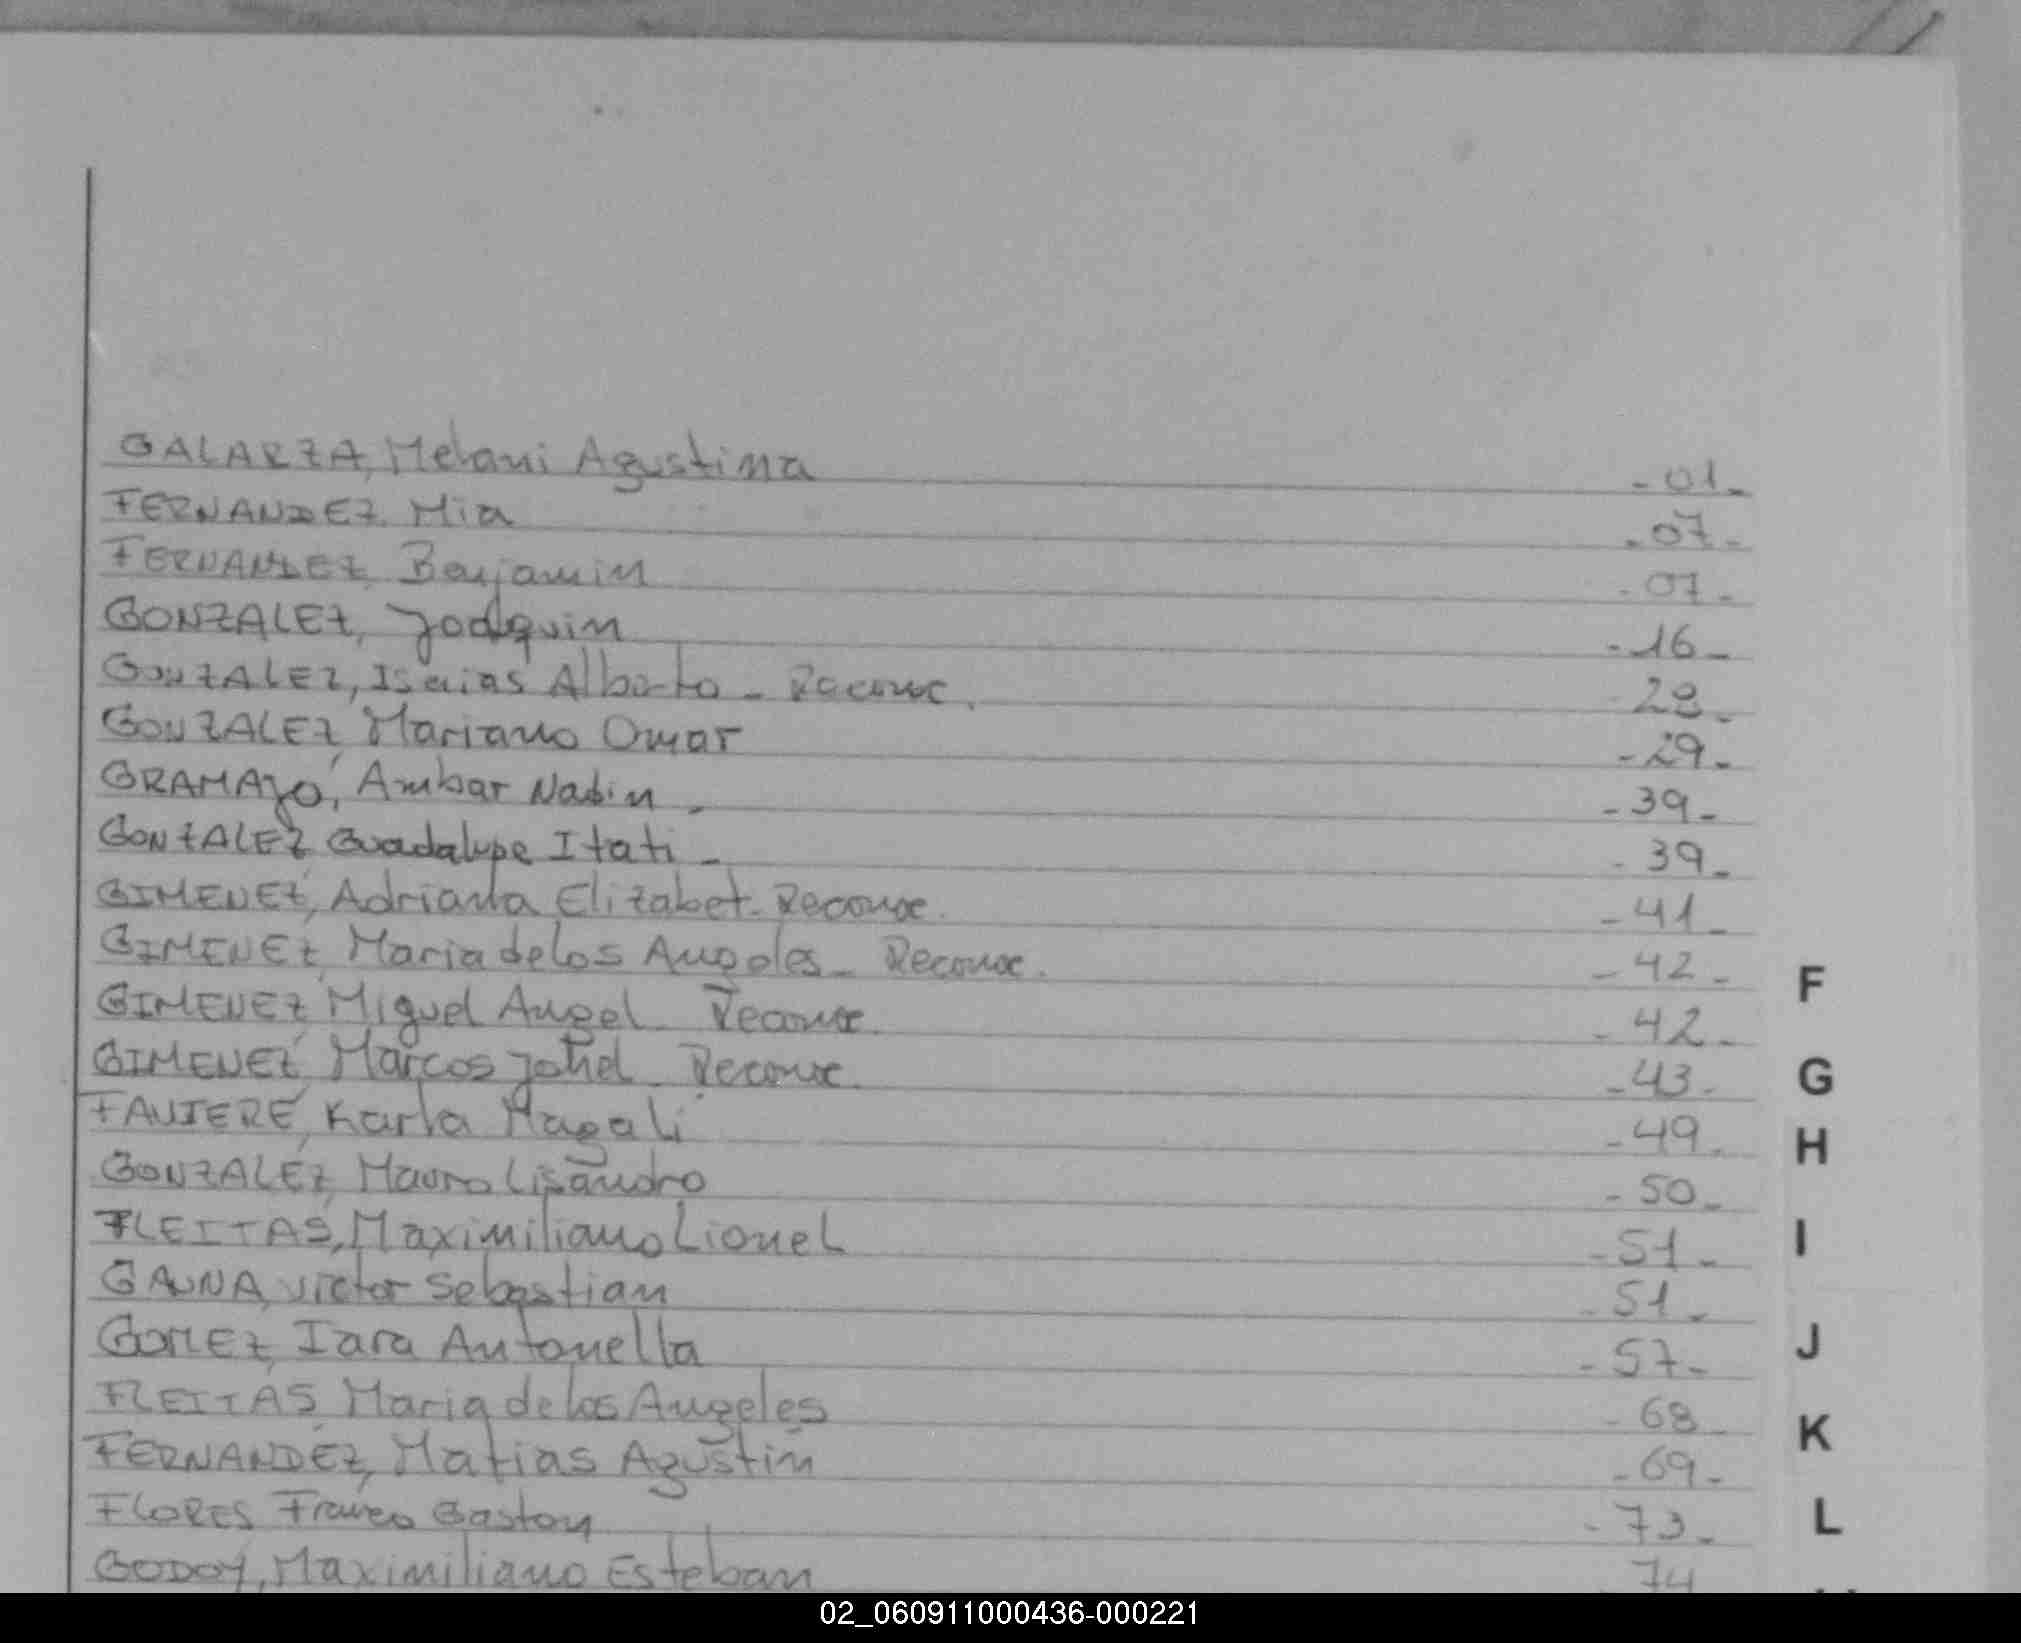 GALARZA, Melani Agustina - 01 -
FERNANDEZ Mia - 07 -
FERNANDEZ, Benjamin - 07 -
GONZALEZ, Joaquin - 16 -
GONZALEZ, Isaias Alberto - Reconoc. 28 -
GONZALEZ, Mariano Omar - 29 -
GRAMAJO, Ambar - 39 -
GONZALEZ Guadalupe Itati - - 39 -
GIMENEZ, Adriana Elizabet - Reconoc. - 41 -
GIMENEZ, Maria de los Angeles - Reconoc. - 42 -
GIMENEZ, Miguel Angel - Reconoc. - 42 -
GIMENEZ, Marcos - Reconoc. - 43 -
Karla Magali - 49 -
GONZALEZ, Mauro Lisandro - 50 -
FLEITAS, Maximiliano Lionel - 51 -
GAUNA, Victor Sebastian - 51 -
GOMEZ, Iara Antonella - 57 -
FLEITAS, Maria de los Angeles - 68 -
FERNANDEZ, Matias Agustin - 69 -
FLORES Franco Gaston - 73 -
GODOY, Maximiliano Esteban 74
F
G
H
I
J
K
L
02_060911000436-000221